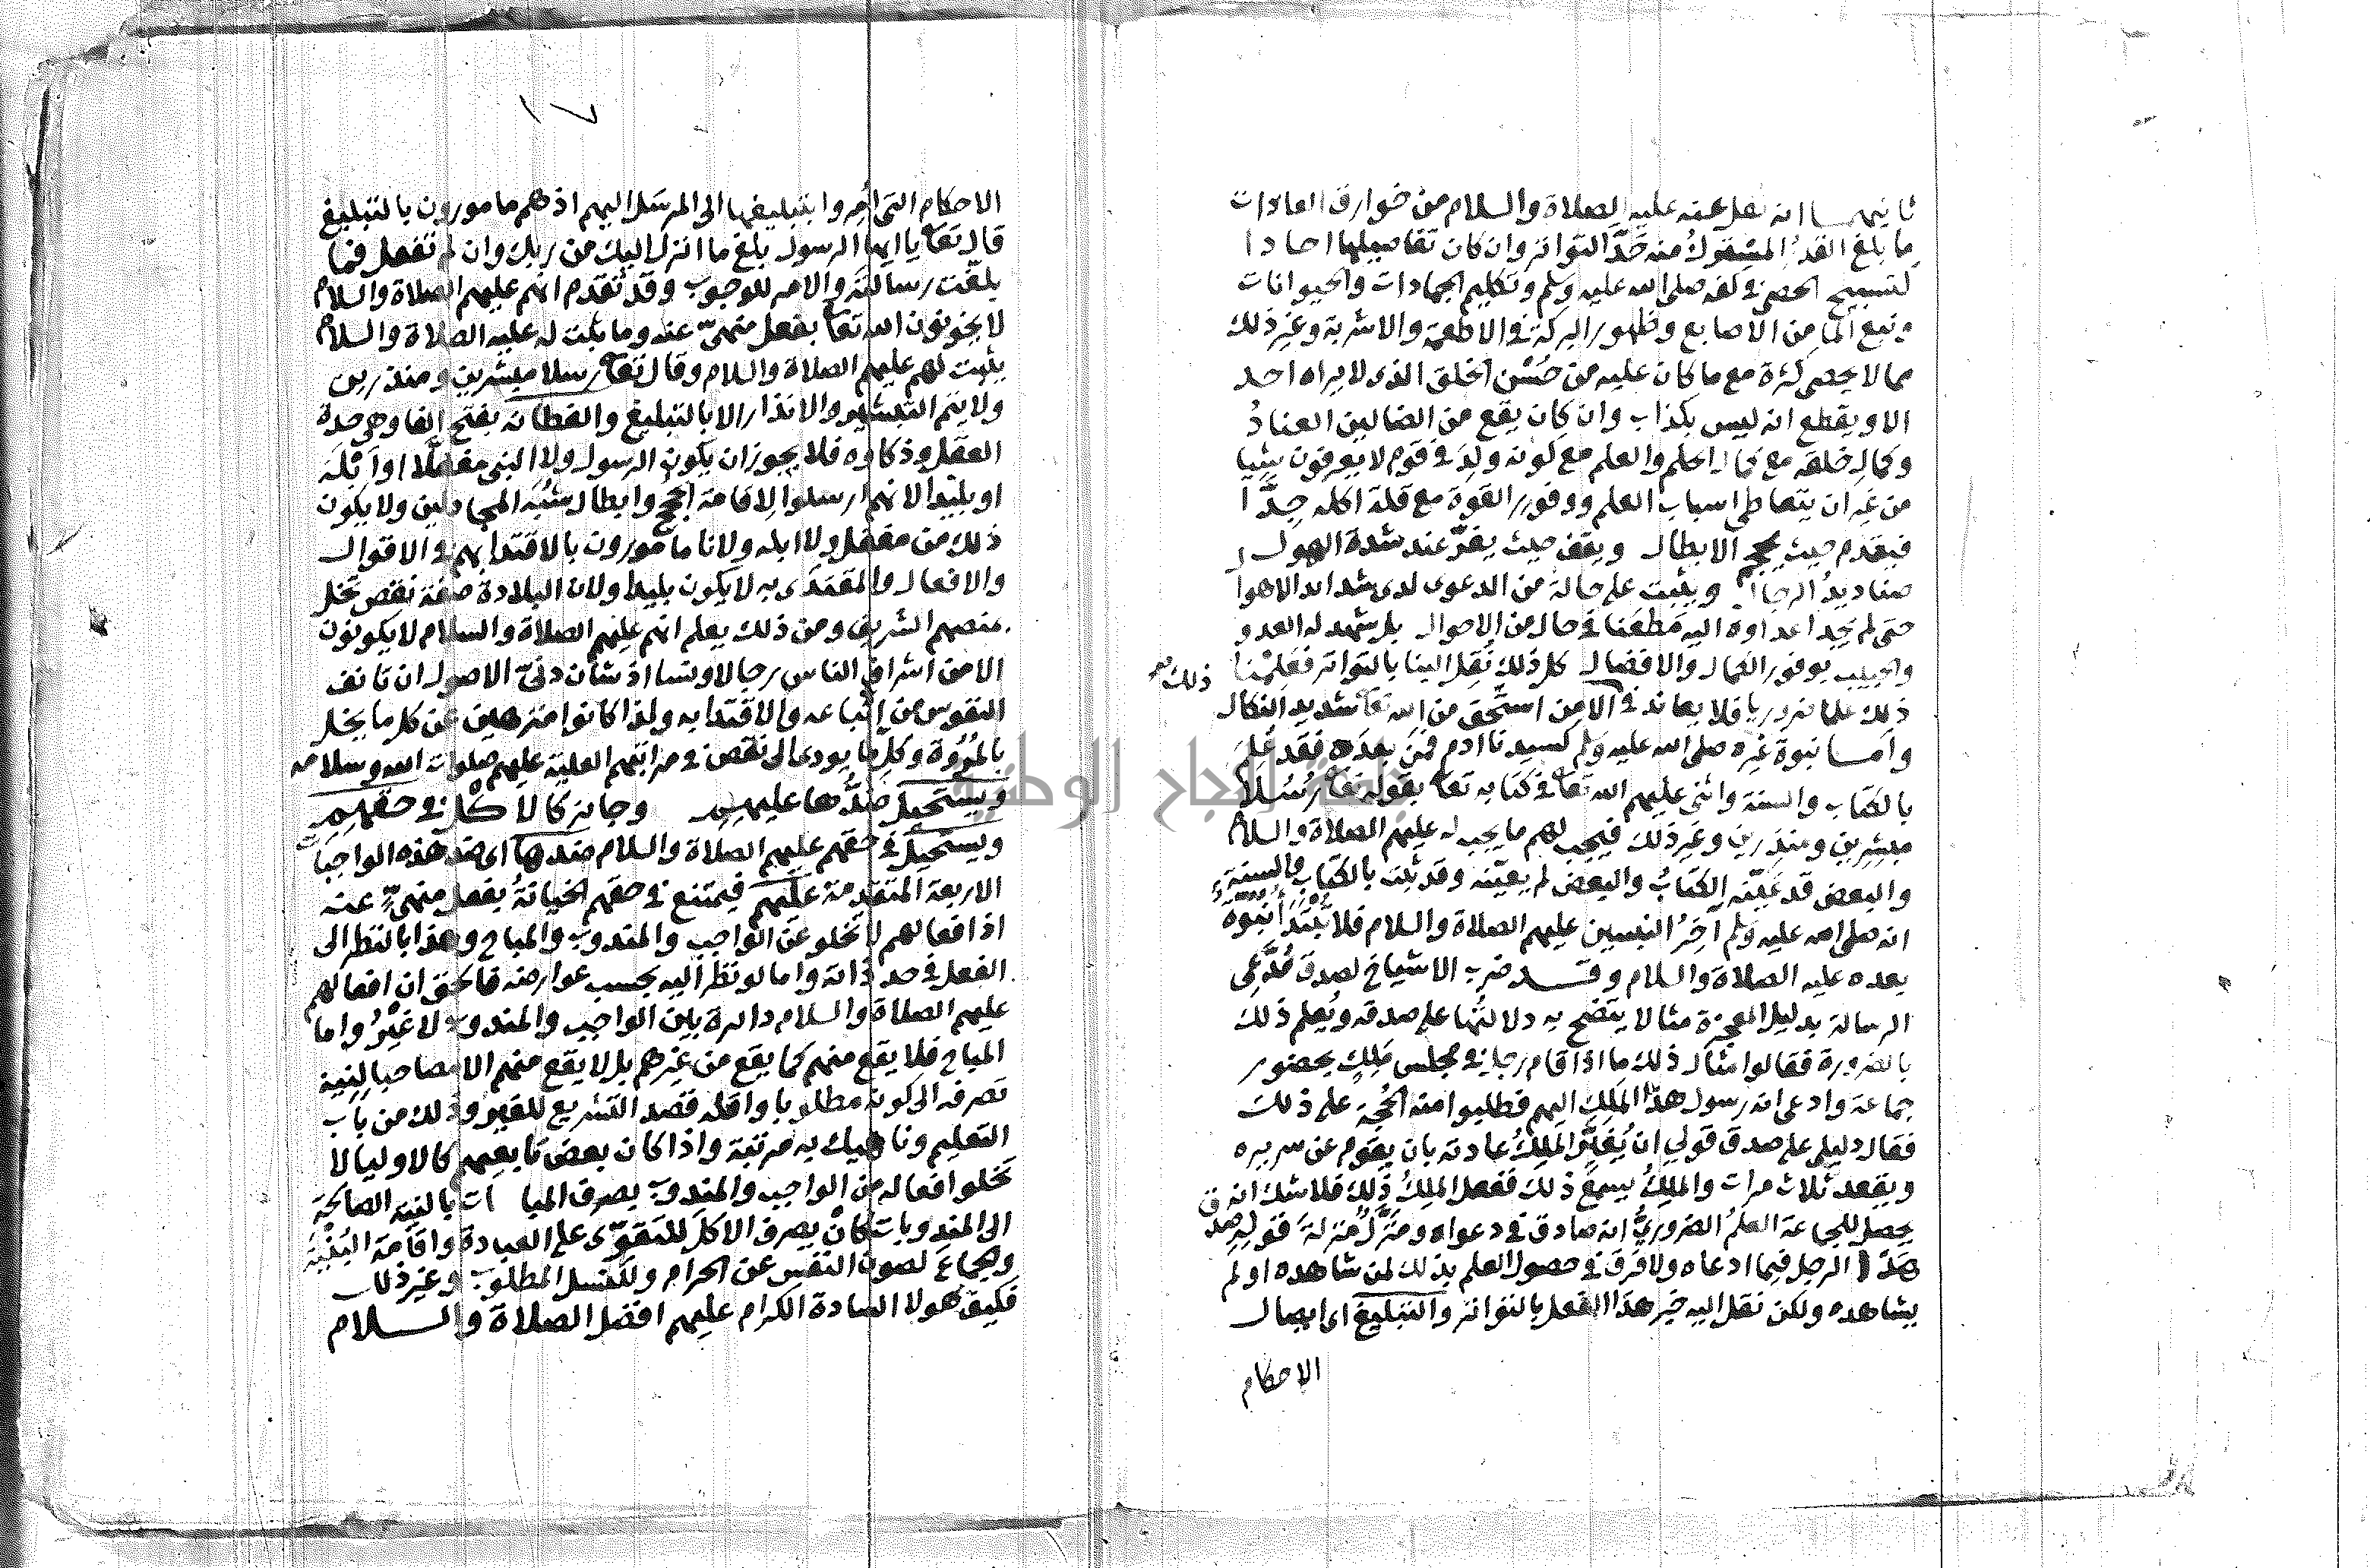 ثانيهما انه نقل عنه عليه الصلاة والسلام من خوارق العادات
ما بلغ القدرُ المشتركُ منه حَدَّ التواتر وان كان تفاصيلها احادا
كتسبيح الحصى في كفه صلى الله عليه وسلم وتكليم الجمادات والحيوانات
ونبع الما من الاصابع وظهور البركة في الاطعمة والاشربة وغير ذلك
مما لا يحصى كثرة مع ما كان عليه من حُسْن الخلق الذى لا يراه احد
الا ويقطع انه ليس بكذاب وان كان يقع من الضالين العنادُ
وكمال خلقه مع كمال الحلم والعلم مع كونه وُلِدَ في قوم لا يعرفون شيا
من غير ان يتعاطى اسباب العلم ووفور القوة مع قلة اكله جِدًّا
فيقدم حيث يحجم الابطال ويقف حيث يفرُّ عند شدة الهول
صناديدُ الرجال ويثبت على حالة من الدعوى لدى شدايد الاهوا
حتى لم يَجِد اعداوه اليه مَطْعَنا في حال من الاحوال بل شهد له العدو
والحبيب بوفور الكمال والافضال كل ذلك نُقِل الينا بالتواتر فعَلِمْنا
ذلك صح
ذلك علما ضروريا فلا يعاند في الا من استحق من الله تعا شديد النكال
وامـا نبوة غيره صلى الله عليه وسلم كسيدنا ادم فَمَنْ بعدَه فقد عُلِمَ
بالكتاب والسنة واثنى عليهم الله تعا في كتابه تعا بقوله تعا رُسُلاً
مبشرين ومنذرين وغير ذلك فيجب لهم ما يجب له عليهم الصلاة والسلام
والبعض قد عَيَّنه الكتابُ والبعض لم يعينه وقد ثبت بالكتاب والسنة
انه صلى الله عليه وسلم آخِرُ النبيين عليهم الصلاة والسلام فلا تُبْتَدأُ نبُوّةٌ
بعده عليه الصلاة والسلام وقـد ضرب الاشياخ لصدق مُدَّعِى
الرسالة بدليل المعجزة مثالا يتضح به دلالتُها على صدقه ويُعلم ذلك
بالضرورة فقالوا مثال ذلك ما اذا قام رجل في مجلس مَلِكٍ بحضور
جماعة وادعى انه رسول هذا المَلِكِ اليهم فطلبوا منه الحُجة على ذلك
فقال دليلى على صدق قولي ان يُغيِّرَ المَلِكُ عادته بان يقوم عن سريره
ويقعد ثلاث مرات والمَلِكُ يسمعُ ذلك ففعل الملِكُ ذلك فلا شك انه
يحصل للجماعة العلمُ الضروريُّ انه صادق في دعواه ومُنَزَّلٌ منزلةَ قوله صدق
هَذَا الرجل فيما ادعاه ولا فَرقَ في حصول العلم بذلك لمن شاهده او لم
يشاهده ولكن نقل اليه خبر هذا الفعل بالتواتر والتبليغ اى ايصال
الاحكام
١٧
الاحكام التى أُمِروا بتبليغها الى المرسَل اليهم اذ هم مامورون بالتبليغ
قال تعا يا ايها الرسول بلغ ما انزل اليك من ربك وان لم تفعل فما
بلغت رسالته والامر للوجوب وقد تقدم انهم عليهم الصلاة والسلام
لا يخونون الله تعا بفعل منهىّ عنه وما يثبت له عليه الصلاة والسلام
يثبت لهم عليهم الصلاة والسلام وقال تعا رسلا مبشرين ومنذرين
ولا يتم التبشير والانذار الا بالتبليغ والفطانه بفتح الفا وهى حدة
العقل وذكاوه فلا يجوز ان يكون الرسول ولا النبى مغفلًا او أَبْلَه
او بليدا لانهم ارسلوا لاقامة الحُجج وابطال شُبَه المجادلين ولا يكون
ذلك من مغفل ولا ابله ولانا مامورون بالاقتدا بهم في الاقوال
والافعال والمقتدَى به لا يكون بليدا ولان البلادة صفة نقص تخل
بمنصبهم الشريف ومن ذلك يعلم انهم عليهم الصلاة والسلام لا يكونون
الا من اشراف الناس رجالا ونسا اذ شأن دنيّ الاصول ان تانف
النفوس من اتباعه والاقتدا به ولذا كانوا منزهين عن كل ما يخل
بالمُرُوة وكل ما يودى الى نقص في مراتبهم العلية عليهم صلوات الله وسلامه
ويستحيل ضدُّها عليهم وجايز كالاكل في حقهم
ويستحيل في حقهم عليهم الصلاة والسلام ضدها اى ضد هذه الواجبات
الاربعة المتقدمة عليهم فيمتنع في حقهم الخيانةُ بفعل منهيٍّ عنه
اذ افعالهم لا تخلو عن الواجب والمندوب والمباح وهذا بالنظر الى
الفعل في حد ذاته واما لو نظر اليه بحسب عوارضه فالحق ان افعالهم
عليهم الصلاة والسلام دايرة بين الواجب والمندوب لا غيْرُ واما
المباح فلا يقع منهم كما يقع من غيرهم بل لا يقع منهم الا مصاحبا لنية
تصرفه الى كونه مطلوبا واقله قصد التشريع للغير وذلك من باب
التعليم وناهيك به مرتبة واذا كان بعض تابعيهم كالاوليا لا
تخلوا افعاله من الواجب والمندوب يصرف المبا ات بالنية الصالحة
الى المندوبات كان يصرف الاكل للتقوِّى على العبادة واقامة البُنْيَة
والجماعَ لصون النفس عن الحرام وللنسل المطلوب وغير ذلك
فكيف هولا السادة الكرام عليهم افضل الصلاة والسلام
جامعة النجاح الوطنية